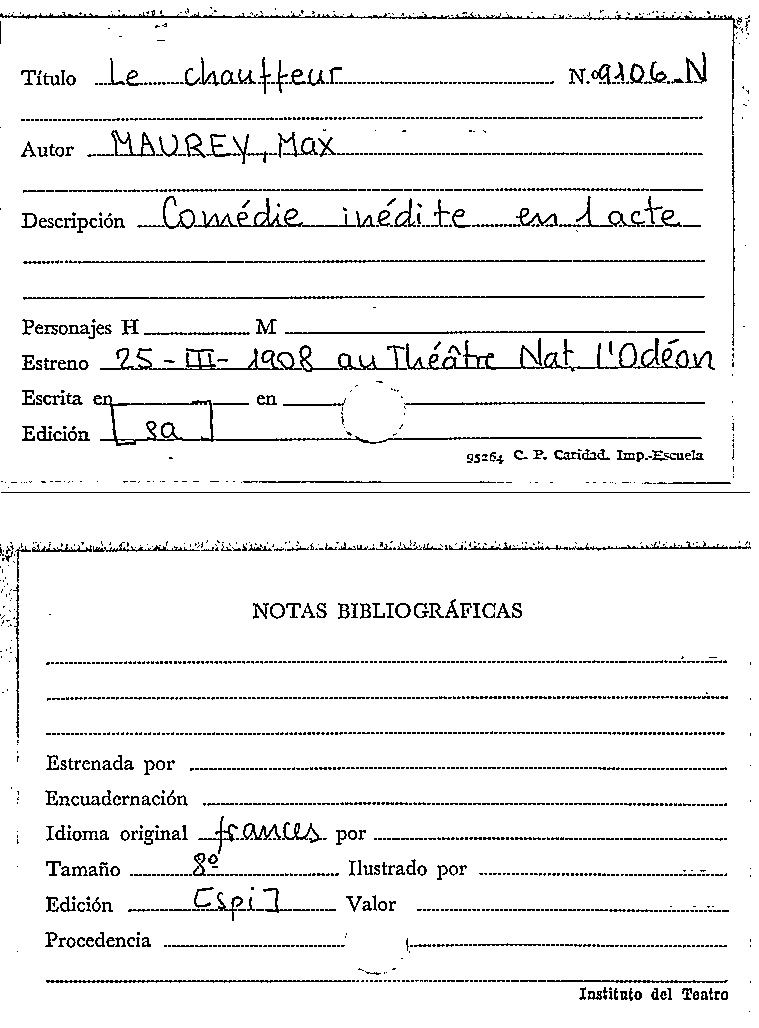 Título Le chauffeur N.º 9106-N
Autor MAUREY, Max
Descripción Comédie inédite en 1 acte
Personajes H M
Estreno 25-III-1908 au Théâtre Nat. l'Odéon
Escrita en en
Edición [sa]
95264 C. P. Caridad. Imp.-Escuela
NOTAS BIBLIOGRÁFICAS
Estrenada por
Encuadernación
Idioma original frances por
Tamaño 8º Ilustrado por
Edición [spi] Valor
Procedencia
Instituto del Teatro